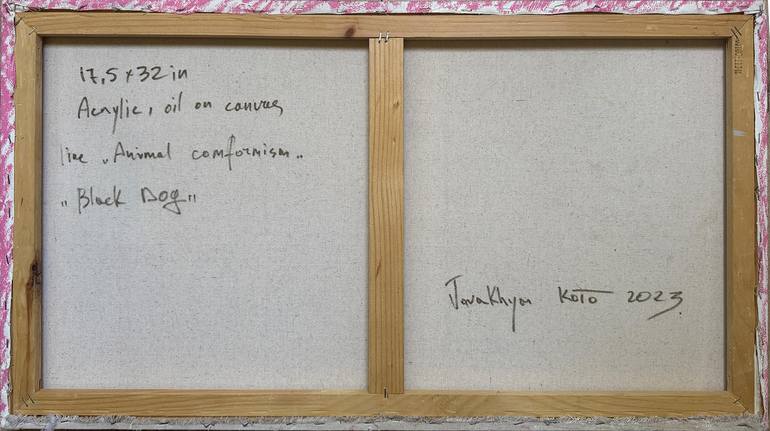 17,5 x 32 in
Acrylic, oil on canvas
line „Animal comformism„
„Black Dog"
Javakhyan Koto 2023